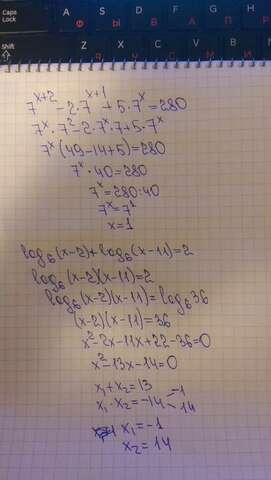 Caps
Lock
A
Ф
S
Ы
D
В
F
А
G
П
H
Р
Shift
Z
Я
X
C
V
B
N
7^{x+2} - 2·7^{x+1} + 5·7^x = 280
7^x · 7^2 - 2·7^x·7 + 5·7^x
7^x (49 - 14 + 5) = 280
7^x · 40 = 280
7^x = 280:40
7^x = 7^1
x = 1
log_6 (x-2) + log_6 (x-11) = 2
log_6 (x-2)(x-11) = 2
log_6 (x-2)(x-11) = log_6 36
(x-2)(x-11) = 36
x^2 - 2x - 11x + 22 - 36 = 0
x^2 - 13x - 14 = 0
x_1 + x_2 = 13
x_1 · x_2 = -14
-1
14
x_1 = -1
x_2 = 14